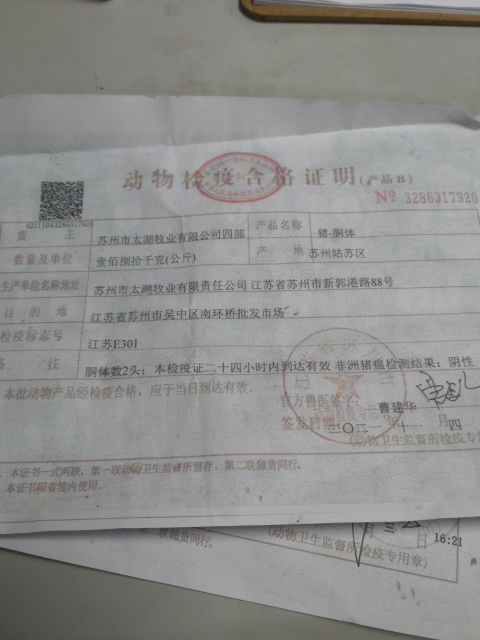 动物检疫合格证明(产品B)
№ 3286317920
货 主 苏州市太湖牧业有限公司四部 产品名称 猪-胴体
数量及单位 壹佰捌拾千克(公斤) 产 地 苏州姑苏区
生产单位名称地址 苏州市太湖牧业有限责任公司 江苏省苏州市新郭港路88号
目 的 地 江苏省苏州市吴中区南环桥批发市场
检疫标志号 江苏E301
备 注 胴体数2头; 本检疫证二十四小时内到达有效 非洲猪瘟检测结果: 阴性
本批动物产品经检疫合格，应于当日到达有效。
官方兽医签字: 曹建华
签发日期 年 十一 月 四
(动物卫生监督所检疫专
. 本证书一式两联，第一联动物卫生监督所留存，第二联随货同行。
. 本证书限省境内使用。
联随货同行。
(动物卫生监督所检疫专用章)
月
日 16:21